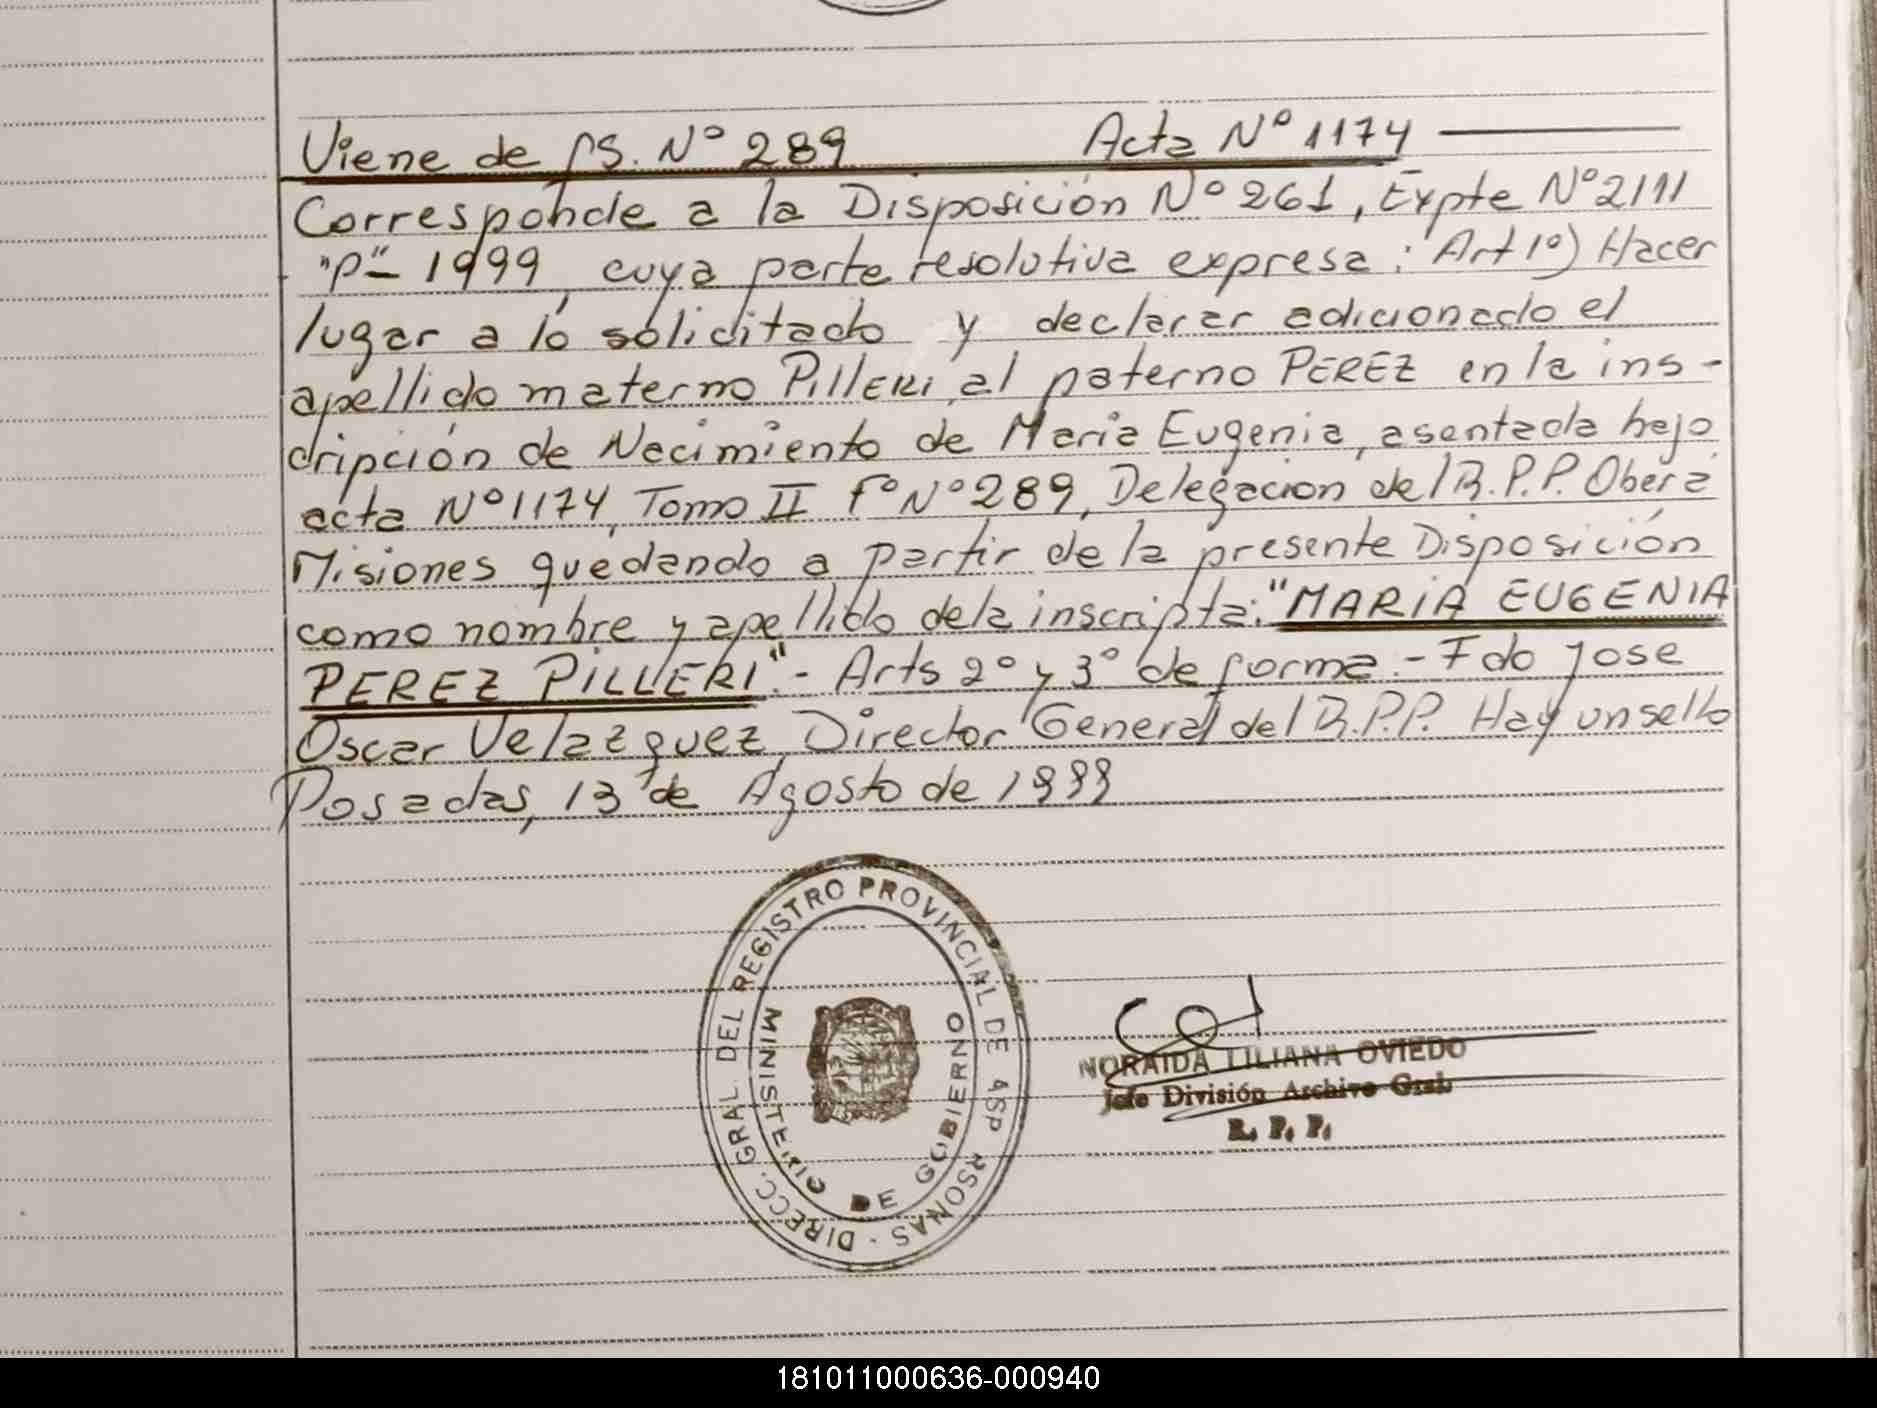 Viene de fs. Nº 289 Acta Nº 1174
Corresponde a la Disposición Nº 261, Expte Nº 2111
"P"- 1999, cuya parte resolutiva expresa: Art 1º) Hacer
lugar a lo solicitado y declarar adicionado el
apellido materno PillERi, al paterno PEREZ en la ins-
cripción de Nacimiento de Maria Eugenia, asentada bajo
acta Nº 1174, Tomo II Fº Nº 289, Delegación del R.P.P. Oberá
Misiones quedando a partir de la presente Disposición
como nombre y apellido de la inscripta: "MARIA EUGENIA
PEREZ PILLERI".- Arts 2º y 3º de forma.- Fdo Jose
Oscar Velazquez, Director General del R.P.P. Hay un sello
Posadas, 13 de Agosto de 1999
DIRECC. GRAL. DEL REGISTRO PROVINCIAL DE ASP RSONAS -
MINISTERIO DE GOBIERNO
NORAIDA LILIANA OVIEDO
Jefe División Archivo Gral.
R. P. P.
181011000636-000940